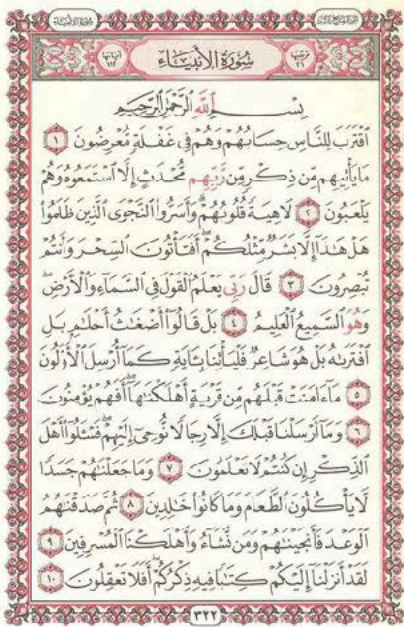 سُورَةُ الْأَنبِيَاءِ
بِسْمِ اللَّهِ الرَّحْمَٰنِ الرَّحِيمِ
ٱقْتَرَبَ لِلنَّاسِ حِسَابُهُمْ وَهُمْ فِى غَفْلَةٍ مُّعْرِضُونَ ١
مَا يَأْتِيهِم مِّن ذِكْرٍ مِّن رَّبِّهِم مُّحْدَثٍ إِلَّا ٱسْتَمَعُوهُ وَهُمْ
يَلْعَبُونَ ٢ لَاهِيَةً قُلُوبُهُمْ ۗ وَأَسَرُّوا۟ ٱلنَّجْوَى ٱلَّذِينَ ظَلَمُوا۟
هَلْ هَٰذَآ إِلَّا بَشَرٌ مِّثْلُكُمْ ۖ أَفَتَأْتُونَ ٱلسِّحْرَ وَأَنتُمْ
تُبْصِرُونَ ٣ قَالَ رَبِّى يَعْلَمُ ٱلْقَوْلَ فِى ٱلسَّمَآءِ وَٱلْأَرْضِ ۖ
وَهُوَ ٱلسَّمِيعُ ٱلْعَلِيمُ ٤ بَلْ قَالُوٓا۟ أَضْغَٰثُ أَحْلَٰمٍۭ بَلِ
ٱفْتَرَىٰهُ بَلْ هُوَ شَاعِرٌ فَلْيَأْتِنَا بِـَٔايَةٍ كَمَآ أُرْسِلَ ٱلْأَوَّلُونَ
٥ مَآ ءَامَنَتْ قَبْلَهُم مِّن قَرْيَةٍ أَهْلَكْنَٰهَآ ۖ أَفَهُمْ يُؤْمِنُونَ
٦ وَمَآ أَرْسَلْنَا قَبْلَكَ إِلَّا رِجَالًا نُّوحِىٓ إِلَيْهِمْ ۖ فَسْـَٔلُوٓا۟ أَهْلَ
ٱلذِّكْرِ إِن كُنتُمْ لَا تَعْلَمُونَ ٧ وَمَا جَعَلْنَٰهُمْ جَسَدًا
لَّا يَأْكُلُونَ ٱلطَّعَامَ وَمَا كَانُوا۟ خَٰلِدِينَ ٨ ثُمَّ صَدَقْنَٰهُمُ
ٱلْوَعْدَ فَأَنجَيْنَٰهُمْ وَمَن نَّشَآءُ وَأَهْلَكْنَا ٱلْمُسْرِفِينَ ٩
لَقَدْ أَنزَلْنَآ إِلَيْكُمْ كِتَٰبًا فِيهِ ذِكْرُكُمْ ۖ أَفَلَا تَعْقِلُونَ ١٠
٣٢٢